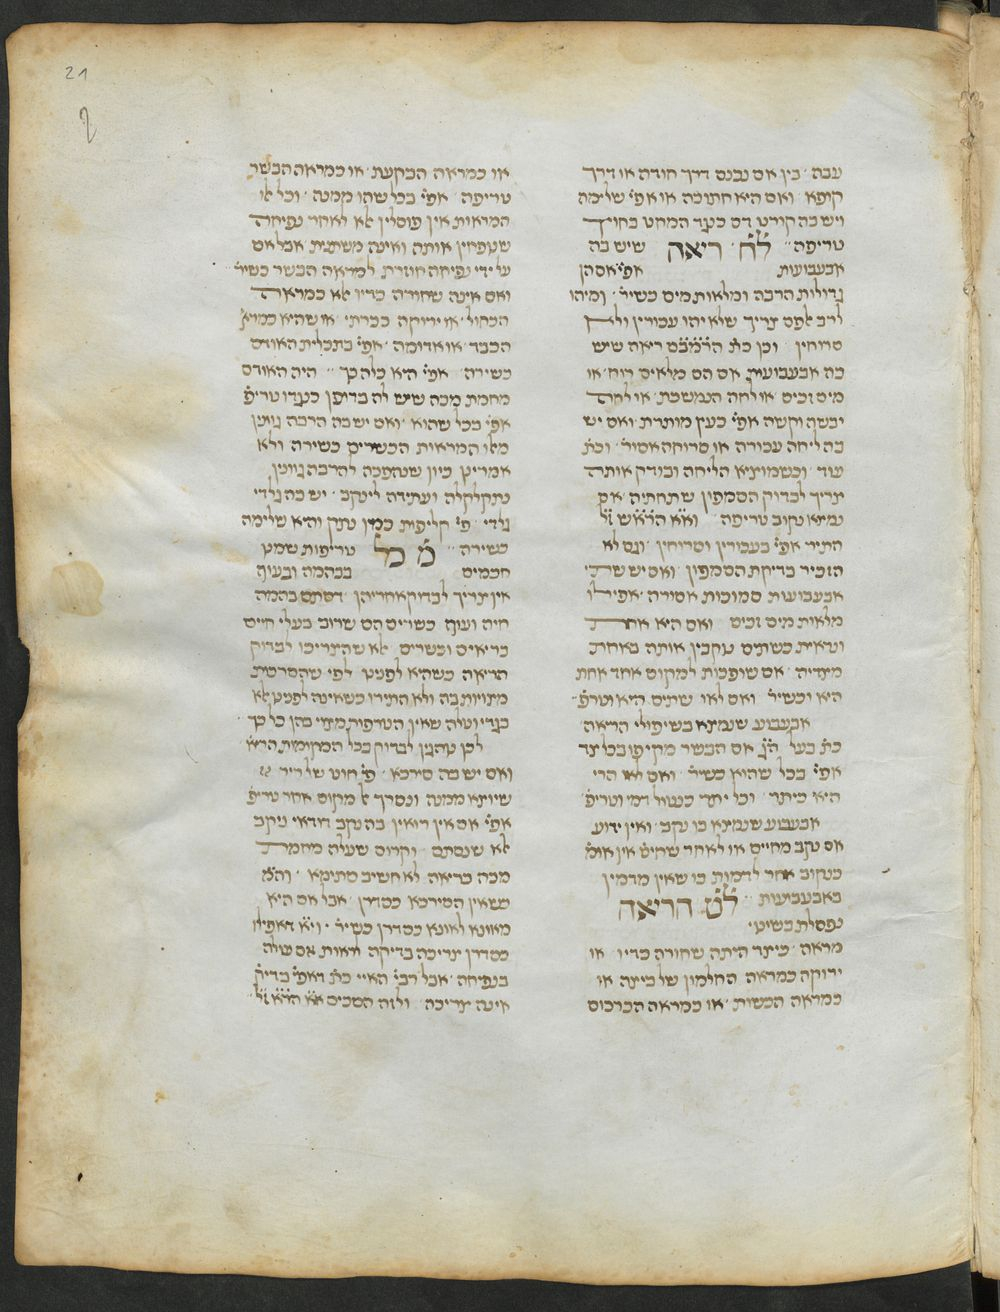 21
עבה׳ בין אם נכנס דרך חודה או דרך
קופא׳ ואם היא תחובה או אפי׳ שלימה
ויש בה קורט דם כנגד המחט בחוץ
טריפה׳׳ לח׳ ריאה שיש בה
אבעבועות אפי׳ אם הן
גדולות הרבה ומלאות מים כשיר׳ ומיהו
סרוחין׳ וכן כת׳ הרמב״ם ריאה שיש
בה אבעבועות אם הם מלאים רוח׳ או
מים זכים׳ או לחה הנמשכת׳ או לחה
יבשה וקשה אפי׳ כעץ מותרת׳ ואם יש
בה ליחה עכורה או סרוחה אסור׳ וכת׳
עוד׳ וכשמוציא הליחה ובודק אותה
צריך לבדוק הסמפון שתחתיה׳ אם
נמצא נקוב טריפה׳ וא״א הרא״ש ז״ל
התיר אפי׳ בעכורין וסרוחין׳ וגם לא
הזכיר בדיקת הסמפון׳ ואם יש שתי
אבעבועות סמוכות אסורה׳ אפילו
מלאות מים זכים׳ ואם היא אחת
ונראית כשתים נוקבין אותה באחת
מצדיה׳ אם שופכות למקום אחד אחת
היא וכשיר׳ ואם לאו שתים היא וטרפ׳׳
אבעבוע שנמצא בשיפולי הריאה
כת׳ בעל ה״ג אם הבשר מקיפו בכל צד
אפי׳ בכל שהוא כשיר׳ ואם לא הרי
היא כיתר׳ וכל יתר כנטול דמי וטריפ׳
אבעבוע שנמצא בו נקב׳ ואין ידוע
אם נקב מחיים או לאחר שחיט׳ אין אומ׳
כנקוב אחר לדמות בו שאין מדמין
באבעבועות׳׳ לט׳ הריאה
נפסלת בשינוי
מראה׳ כיצד היתה שחורה כדיו׳ או
ירוקה כמראה החלמון של ביצה או
כמראה הכשות׳ או כמראה הכרכום
או כמראה הבקעת׳ או כמראה הבשר
טריפה׳ אפי׳ בכל שהו ממנה׳ וכל אלו
המראות אין פוסלין אלא לאחר נפיחה
שנופחין אותה ואינה משתנית אבל אם
על ידי נפיחה חוזרת למראה הבשר כשיר׳
ואם אינה שחורה כדיו אלא כמראה
הכחול׳ או ירוקה ככרתי׳ או שהיא כמרא׳
הכבד׳ או אדומה׳ אפי׳ בתכלית האודם
כשירה׳ אפי׳ היא כולה כך׳׳ היה האודם
מחמת מכה שיש לה בדופן כנגדו טריפ׳
אפי׳ בכל שהוא׳ ואם יש בה הרבה גוונין
מאלו המראות הכשרים כשירה׳ ולא
אמרינן כיון שנהפכה להרבה גוונין
נתקלקלה ועתידה לינקב׳ יש בה גלדי
גלדי׳ פי׳ קליפות כמין נתק והיא שלימה
כשירה׳׳ מ׳ כל טריפות שמנו
חכמים בבהמה ובעוף
אין צריך לבדוק אחריהן׳ דסתם בהמה
חיה ועוף כשרים הם שרוב בעלי חיים
בריאים וכשרים׳ לא שהצריכו לבדוק
הריאה כשהיא לפנינו לפי שהסרכות
מצויות בה ולא התירו כשאינה לפנינו אלא
בגדי וטלה שאין הטרפות מצוי בהן כל כך
לכן נוהגין לבדוק בכל המקומות הרא׳
ואם יש בה סירכא׳ פי׳ חוט של ריר
שיוצא ממנה ונסרך אל מקום אחר טריפ׳
אפי׳ אם אין רואין בה נקב דודאי ניקב
אלא שנסתם וקרום שעלה מחמת
מכה בריאה לא חשיב סתימא׳ וה״מ
שאין הסירכא כסדרן׳ אבל אם היא
מאונא לאונא כסדרן כשיר׳ וי״א דאפילו
כסדרן צריכה בדיקה לראות אם עולה
בנפיחה׳ אבל רבי׳ האיי כת׳ דאפי׳ בדיק׳
אינה צריכה׳ ולזה הסכים א״א הרא״ש ז״ל